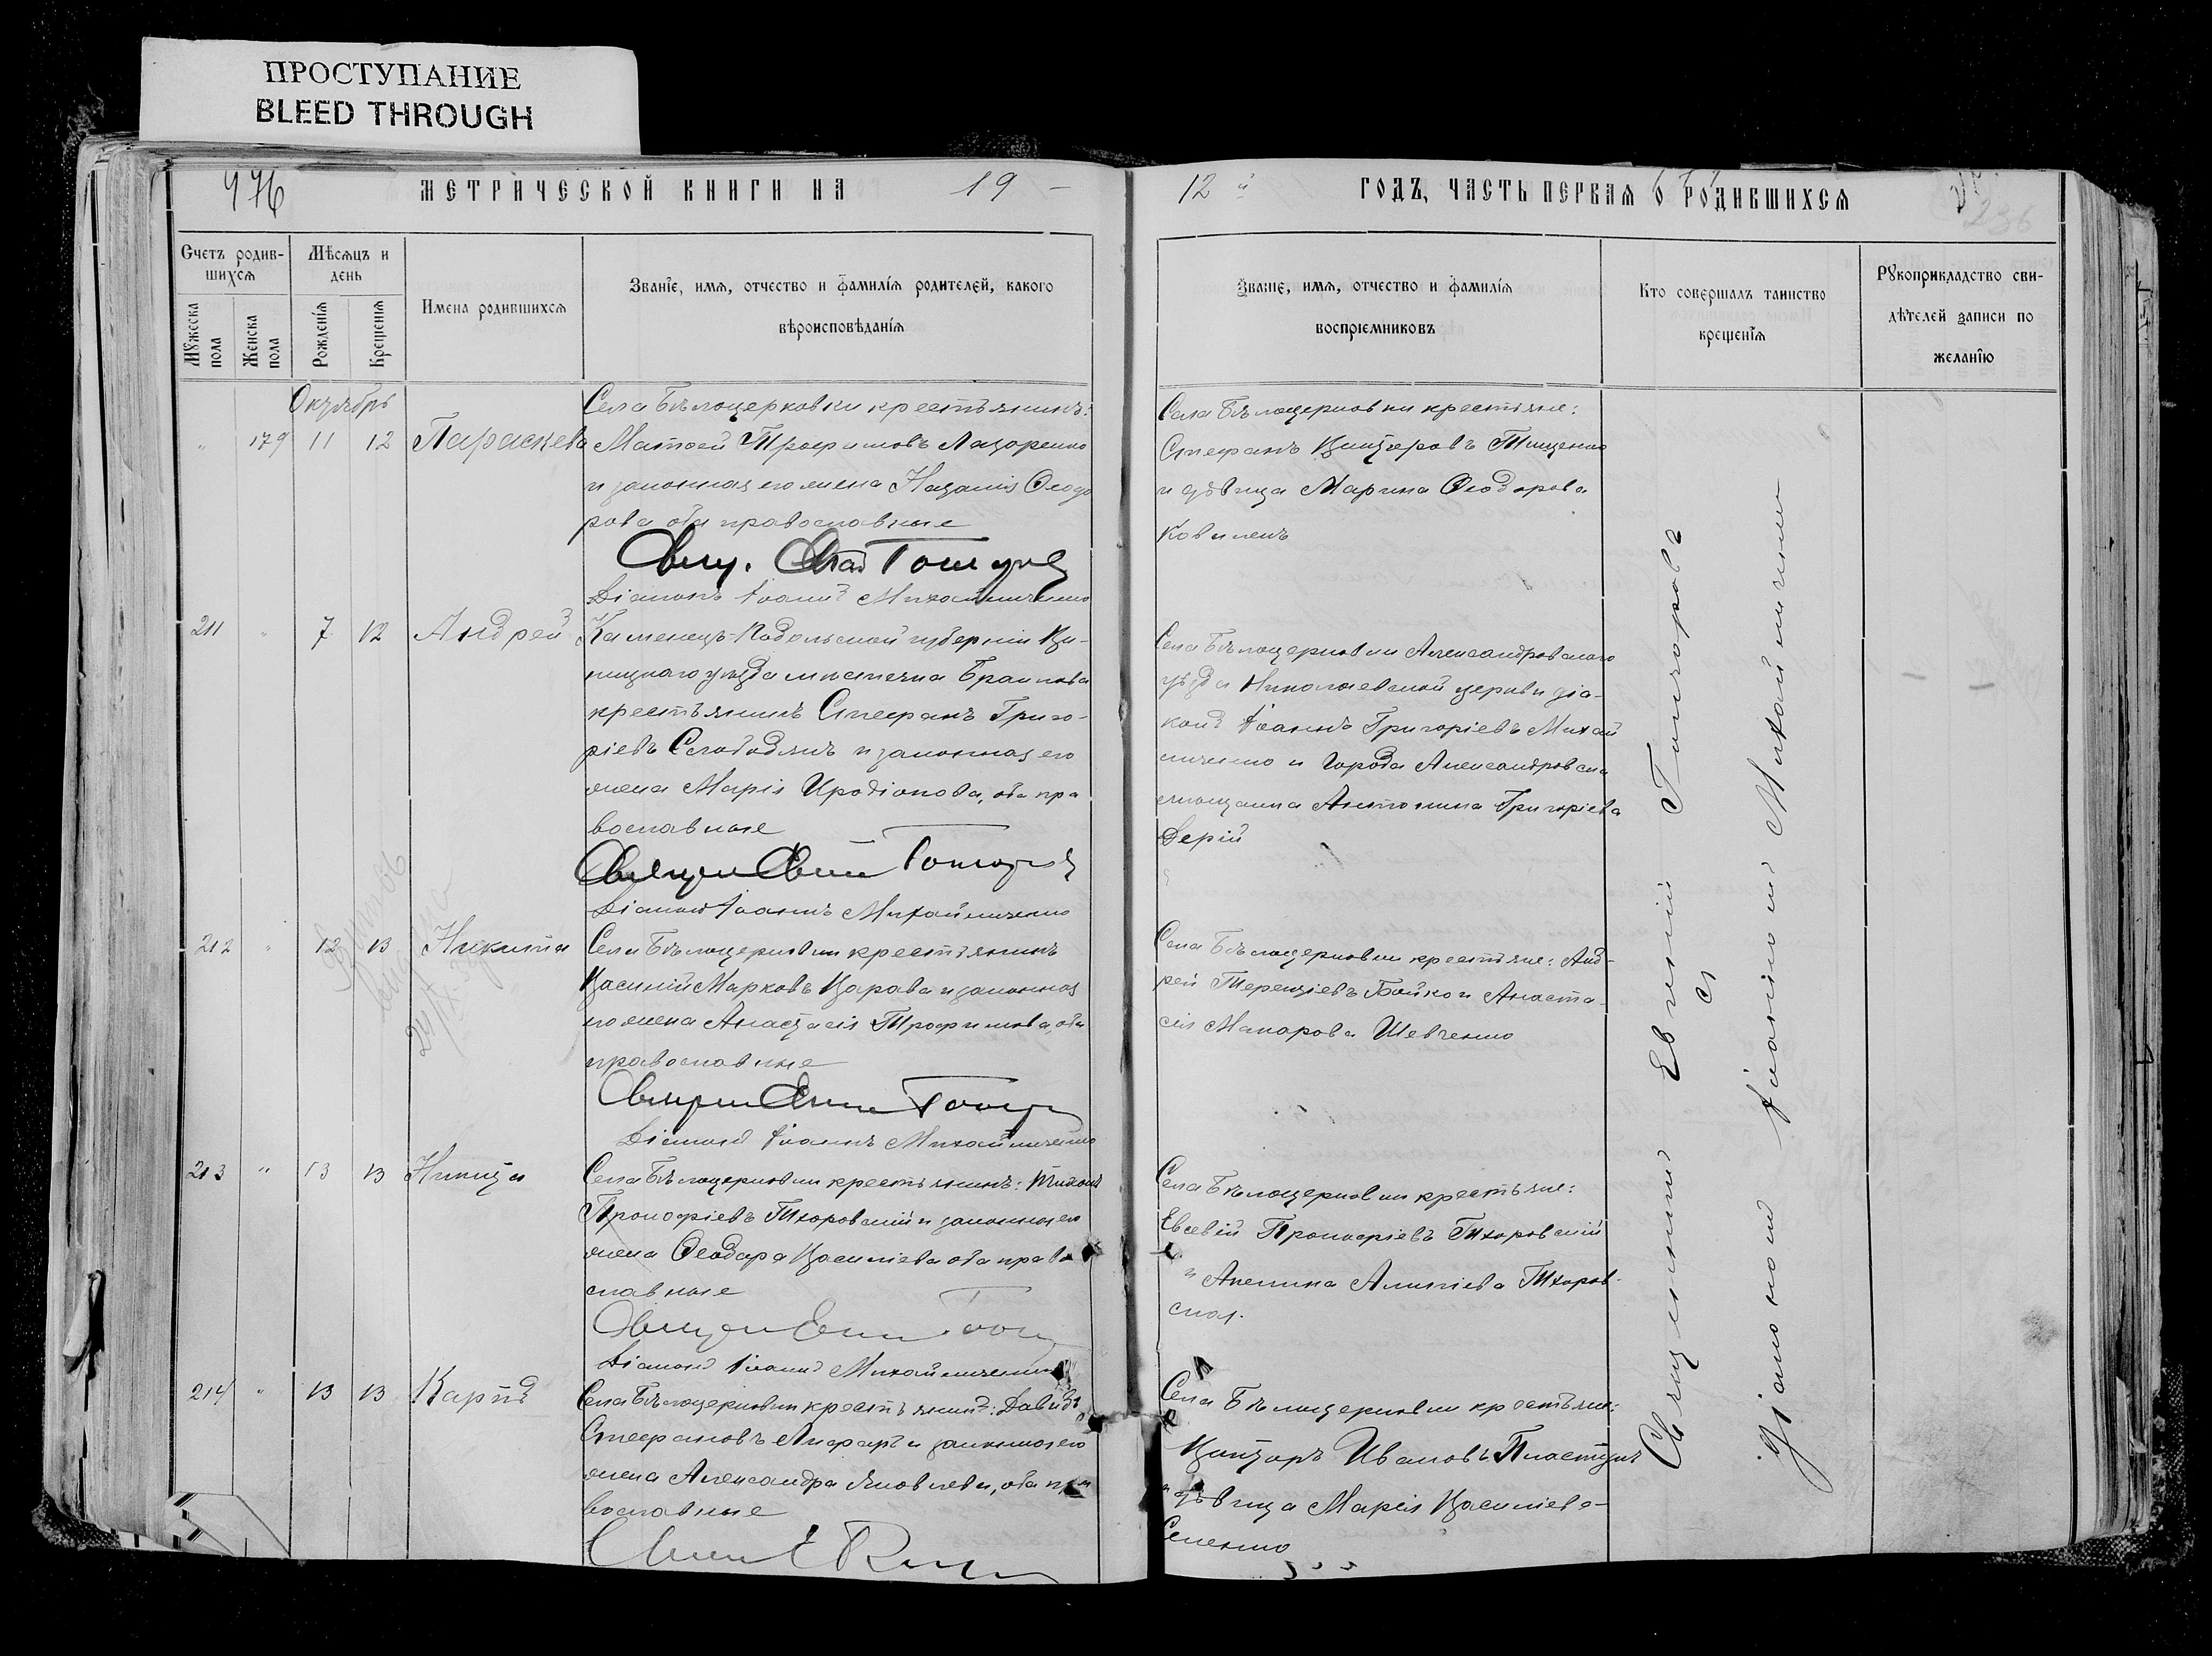 ПРОСТУПАНИЕ
BLEED THROUGH
976
МЕТРИЧЕСКОЙ КНИГИ НА 19
12 й ГОДЪ, ЧАСТЬ ПЕРВАЯ О РОДИВШИХСЯ
236
Счетъ родив-
шихся
Мужеска
пола
Женска
пола
Мѣсяцъ и
день
Рожденія
Крещенія
Имена родившихся
Званіе, имя, отчество и фамилія родителей, какого
вѣроисповѣданія
Званіе, имя, отчество и фамилія
воспріемниковъ
Кто совершалъ таинство
крещенія
Рукоприкладство сви-
дѣтелей записи по
желанію
Октябрь
" 179 11 12 Параскева
Села Бѣлоцерковки крестьянинъ:
Матвей Трофимовъ Лазоренко
и законная его жена Наталія Ѳеодо
рова оба православные
Діаконъ Іоаннъ Михайличенко
Села Бѣлоцерковки крестьяне:
Стефанъ Викторовъ Тищенко
и дѣвица Марина Ѳеодорова
211 " 7 12 Андрей
Каменецъ-Подольской губерніи Ви-
ницкаго уѣзда мѣстечка Браилова
крестьянинъ Стефанъ Григо-
ріевъ Слободянъ и законная его
жена Марія Иродіонова, оба пра
вославные
Діаконъ Іоаннъ Михайличенко
Села Бѣлоцерковки Александровскаго
уѣзда Николаевской церкви діа-
конъ Іоаннъ Григоріевъ Михай
личенко и города Александровска
мѣщанка Антонина Григоріева
Дерій
212 " 12 13 Никита
Села Бѣлоцерковки крестьянинъ
Василій Марковъ Варава и законная
его жена Анастасія Трофимова, оба
православные
Діаконъ Іоаннъ Михайличенко
Села Бѣлоцерковки крестьяне: Анд-
рей Терентіевъ Бойко и Анаста-
сія Макарова Шевченко
213 " 13 13 Никита
Села Бѣлоцерковки крестьянинъ: Тихонъ
Прокофіевъ Тхоровскій и законная его
жена Ѳеодора Василіева оба право
славные
Діаконъ Іоаннъ Михайличенко
Села Бѣлоцерковки крестьяне:
Евсевій Прокофіевъ Тхоровскій
и Акелина Алипіева Тхоров-
ская.
214 " 13 13 Карпъ
Села Бѣлоцерковки крестьянинъ: Давидъ
Стефановъ и законная его
жена Александра Яковлева, оба пра
вославные
Села Бѣлоцерковки крестьяне:
Викторъ Ивановъ Пластунъ
и дѣвица Марія Василіева
Сененко
Священникъ Евгеній
съ
діакономъ Іоанномъ Михайличенко